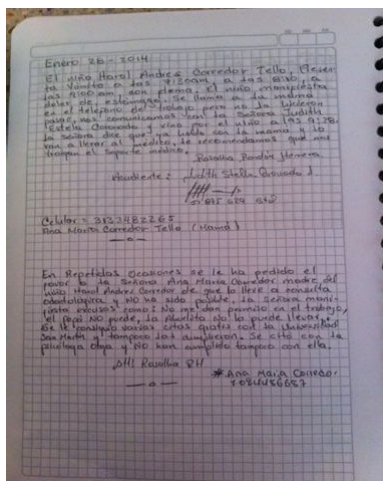 Enero 28-2014
El niño Harol Andres Corredor Tello, Presen
ta Vomito a las 7:20am, a las 8:10, a
las 9:00am, con flema, El niño manifiesta
dolor de estomago. Se llamo a la mamá
en el telefono del trabajo pero no la hicieron
pasar, nos comunicamos con la Señora Judith
Estela Coronado y vino por el niño a las 9:28.
la Señora dice que ya hablo con la mamá y lo
van a llevar al médico, le recomendamos que nos
traigan el soporte médico.
Rosalba
Acudiente: Judith Stella
Celular = 3133482265
Ana María Corredor Tello (Mamá)
En Repetidas Ocasiones se le ha pedido el
favor a la Señora Ana María Corredor madre del
niño Harol Andres Corredor de que lo lleve a consulta
odontológica y NO ha sido posible, la Señora mani-
fiesta excusas como: No me dan permiso en el trabajo,
el papá NO puede, la Abuelita NO lo puede llevar,
Se le consiguio varias citas gratis con la Universidad
San Martín y tampoco las cumplieron. Se citó con la
psicologa Olga y NO han cumplido tampoco con ella.
Att: Rosalba PH
* Ana María Corredor